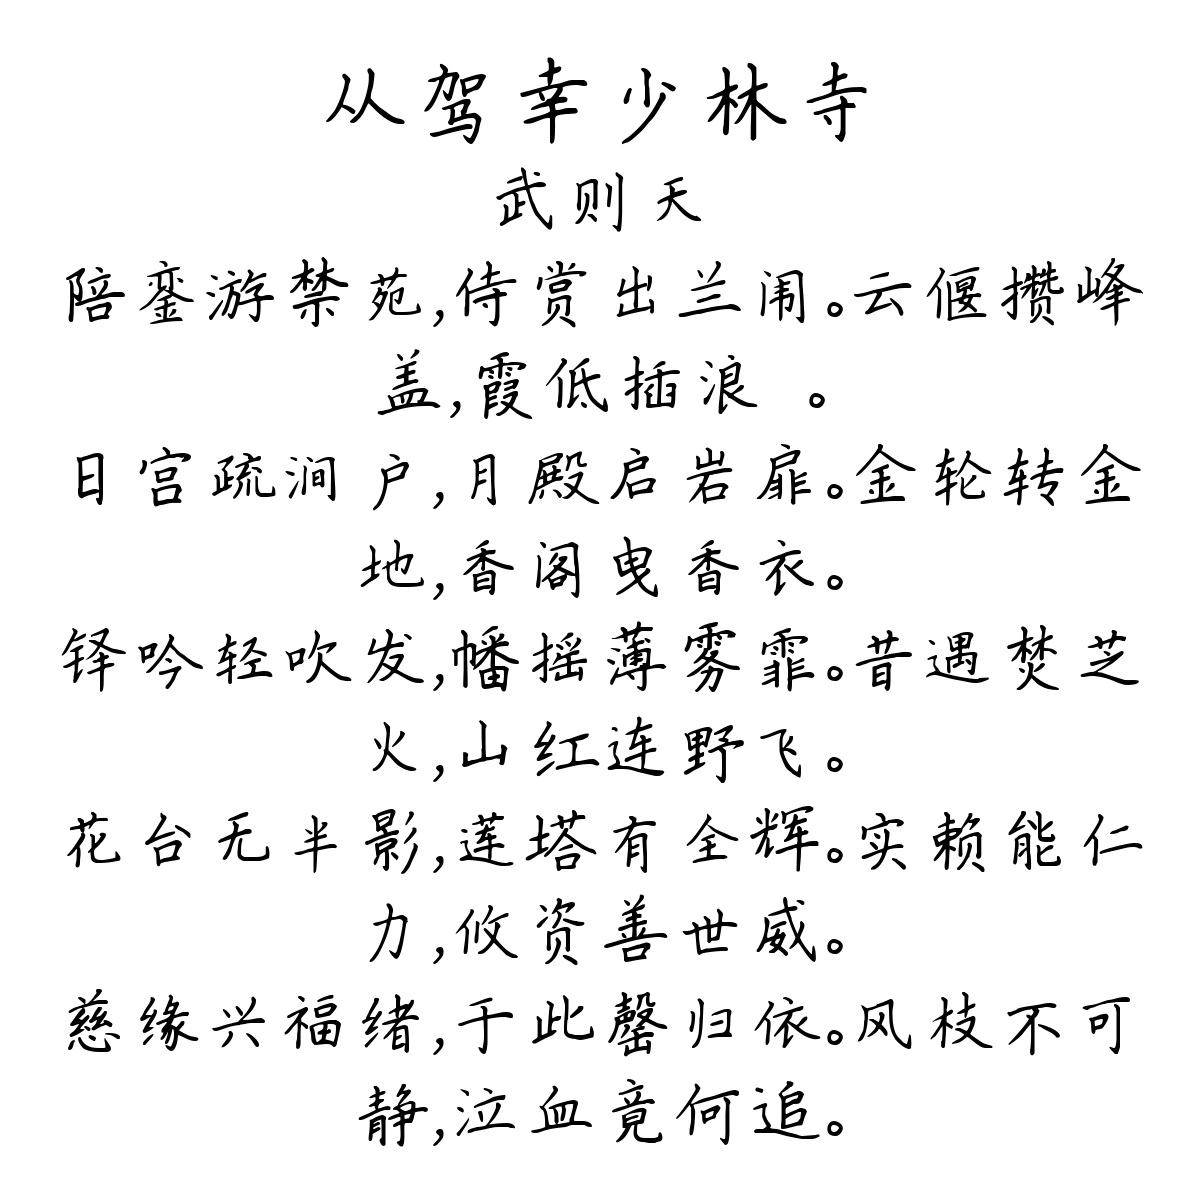 从驾幸少林寺
武则天
陪銮游禁苑,侍赏出兰闱。云偃攒峰
盖,霞低插浪 。
日宫疏涧户,月殿启岩扉。金轮转金
地,香阁曳香衣。
铎吟轻吹发,幡摇薄雾霏。昔遇焚芝
火,山红连野飞。
花台无半影,莲塔有全辉。实赖能仁
力,攸资善世威。
慈缘兴福绪,于此罄归依。风枝不可
静,泣血竟何追。